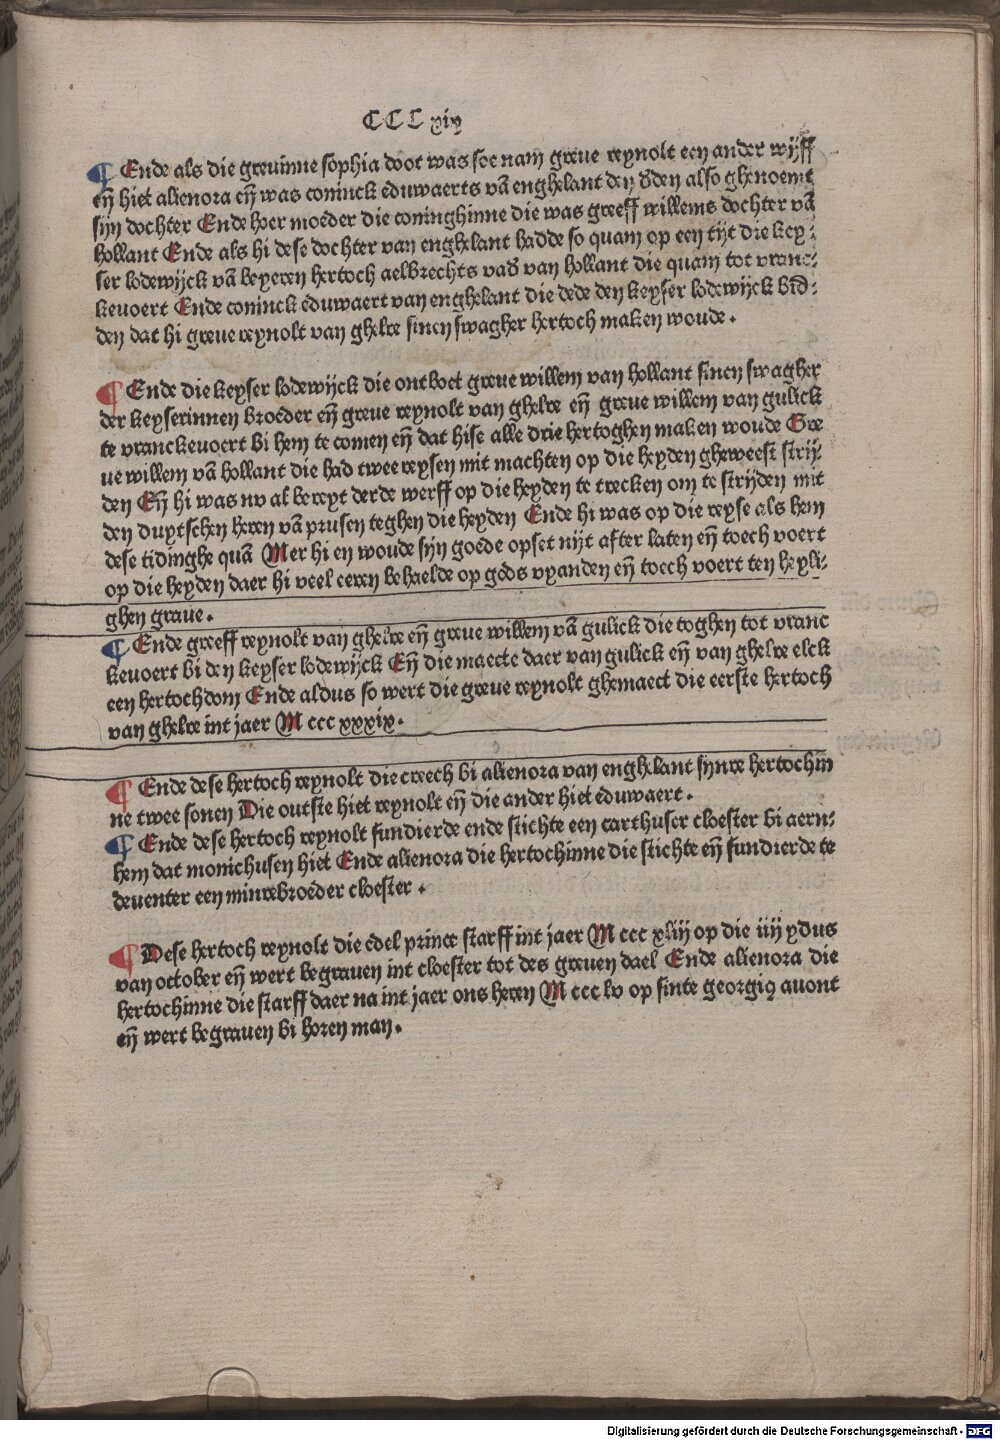 CCC xix
¶ Ende als die greuinne sophia doot was soe nam greue reynolt een ander wijff
eñ hiet alienora eñ was coninck eduwaerts vā enghelant den dden also ghenoemt
sijn dochter Ende hoer moeder die coninghinne die was greeff willems dochter vā
hollant Ende als hi dese dochter van enghelant hadde so quam op een tijt die key⸗
ser lodewijck vā beyeren hertoch aelbrechts vad van hollant die quam tot vranc⸗
keuoert Ende coninck eduwaert van enghelant die dede den keyser lodewijck bid⸗
den dat hi greue reynolt van ghelre sinen swagher hertoch maken woude.
¶ Ende die keyser lodewijck die ontboet greue willem van hollant sinen swagher
der keyserinnen broeder eñ greue reynolt van ghelre eñ greue willem van gulick
te vranckeuoert bi hem te comen eñ dat hise alle drie hertoghen maken woude Gre
ue willem vā hollant die had twee reysen mit machten op die heyden gheweest strij⸗
den Eñ hi was nv al bereyt derde werff op die heyden te trecken om te strijden mit
den duytschen heren vā prusen teghen die heyden Ende hi was op die reyse als hem
dese tidinghe quā Mer hi en woude sijn goede opset nijt after laten eñ toech voert
op die heyden daer hi veel eeren behaelde op gods vyanden eñ toech voert ten heyli⸗
ghen graue.
¶ Ende greeff reynolt van ghelre eñ greue willem vā gulick die toghen tot vranc
keuoert bi den keyser lodewijck Eñ die maecte daer van gulick eñ van ghelre elck
een hertochdom Ende aldus so wert die greue reynolt ghemaect die eerste hertoch
van ghelre int jaer M ccc xxxix.
¶ Ende dese hertoch reynolt die creech bi alienora van enghelant sijnre hertochin
ne twee sonen Die outste hiet reynolt eñ die ander hiet eduwaert.
¶ Ende dese hertoch reynolt fundierde ende stichte een carthuser cloester bi aern⸗
hem dat monichusen hiet Ende alienora die hertochinne die stichte eñ fundierde te
deuenter een minrebroeder cloester.
¶ Dese hertoch reynolt die edel prince starff int jaer M ccc xliij op die iiij ydus
van october eñ wert begrauen int cloester tot des greuen dael Ende alienora die
hertochinne die starff daer na int jaer ons heren M ccc lv op sinte georgiꝰ auont
eñ wert begrauen bi horen man.
Digitalisierung gefördert durch die Deutsche Forschungsgemeinschaft - DFG